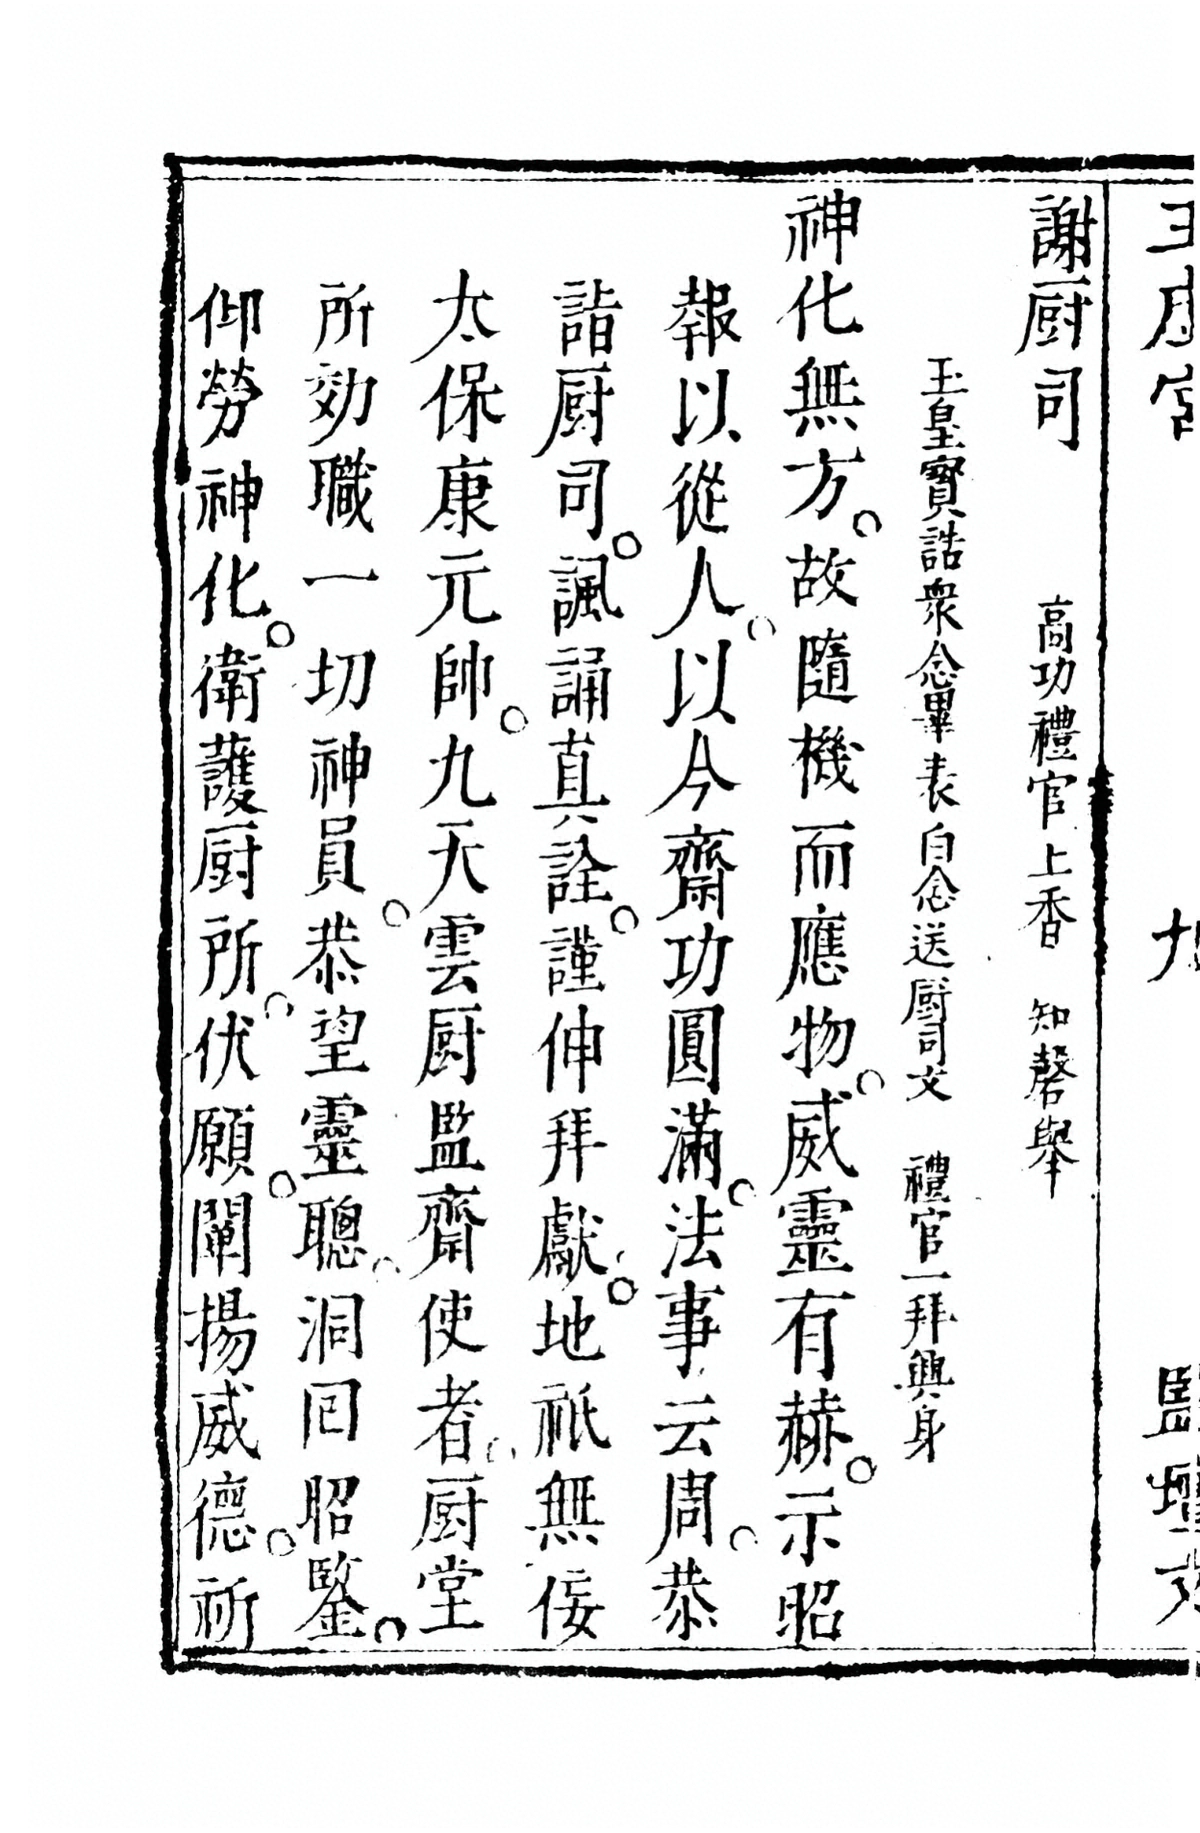 謝厨司　高功禮官上香　知磬舉
玉皇寶誥衆念畢表白念送厨司文　禮官一拜興身
神化無方。故隨機而應物。威靈有赫。示昭
報以從人。以今齋功圓滿。法事云周。恭
詣厨司。諷誦真詮。謹伸拜獻。地祇無侫
太保康元帥。九天雲厨監齋使者。厨堂
所効職一切神員。恭望靈聰。洞囘昭鑒。
仰勞神化。衛護厨所。伏願。闡揚威德。祈